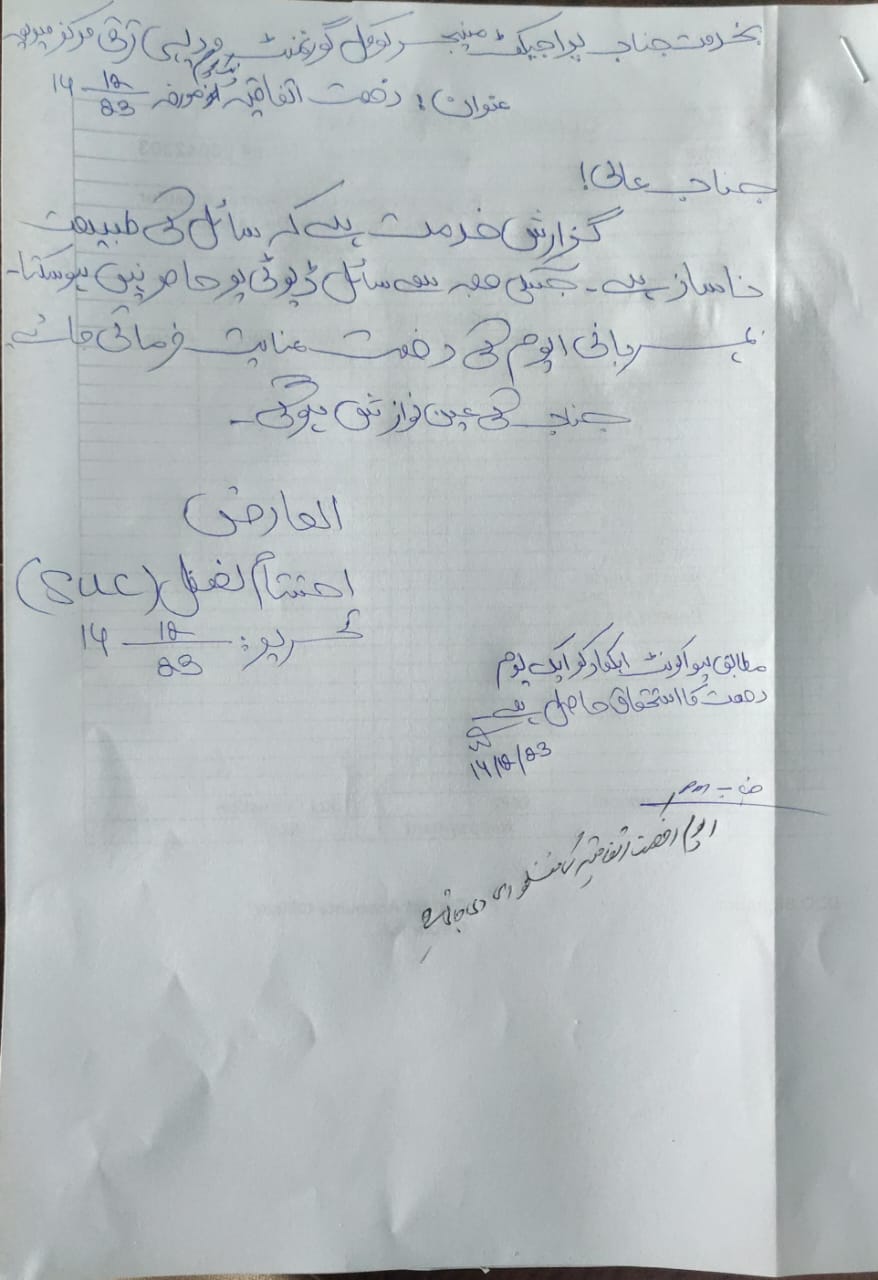 بخدمت جناب پراجیکٹ منیجر لوکل گورنمنٹ و دیہی ترقی مرکز
عنوان: رخصت اتفاقیہ یکیوم مورخہ 14-12/23
جناب عالی!
گزارش خدمت ہے کہ سائل کی طبیعت
ناساز ہے۔ جسکی وجہ سے سائل ڈیوٹی پر حاضر نہیں ہوسکتا۔
بمہربانی ایوم کی رخصت عنایت فرمائی جائے
جناب کی عین نوازش ہوگی۔
العارض
احتشام افضل (SUC)
تحریر: 14-12/23
مطابق لیو اکونٹ اہلکار کو ایک یوم
رخصت کا استحقاق حاصل ہے۔
14/12/23
PM
ایوم رخصت اتفاقیہ کی منظوری دی جاتی ہے